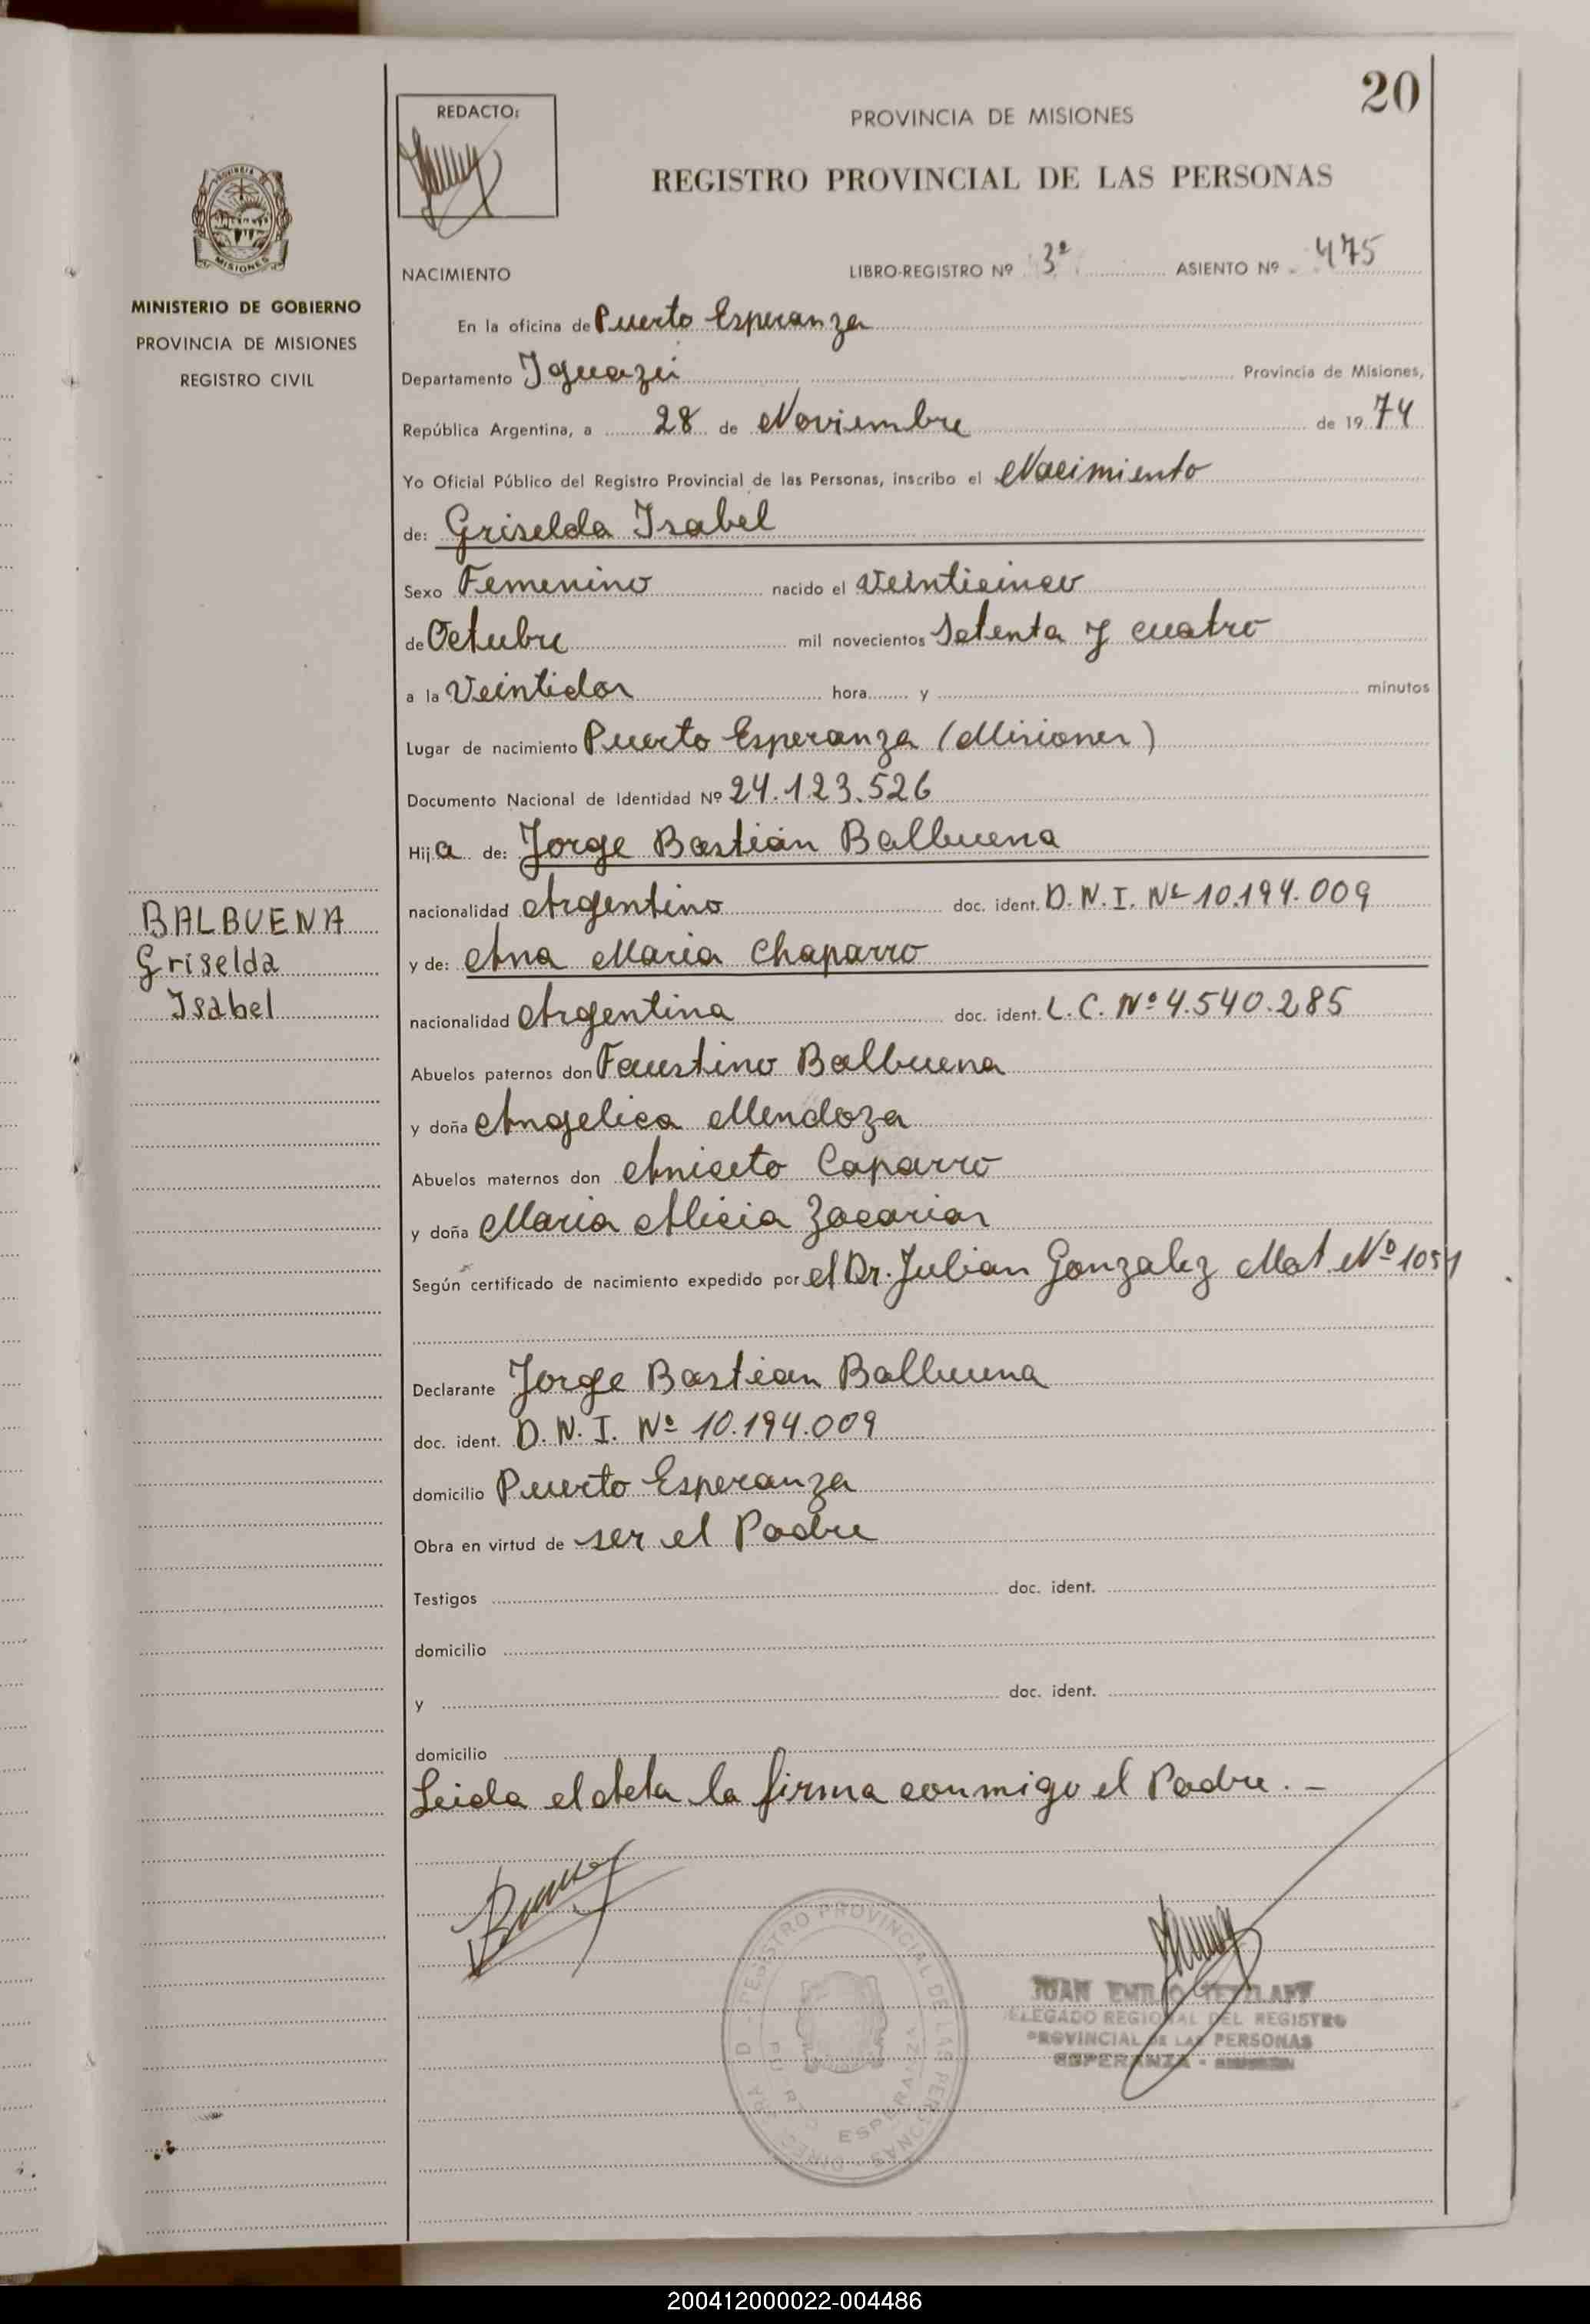 20
REDACTO:
PROVINCIA DE MISIONES
REGISTRO PROVINCIAL DE LAS PERSONAS
MISIONES
MINISTERIO DE GOBIERNO
PROVINCIA DE MISIONES
REGISTRO CIVIL
NACIMIENTO LIBRO-REGISTRO Nº 3º ASIENTO Nº 475
En la oficina de Puerto Esperanza
Departamento Iguazú Provincia de Misiones,
República Argentina, a 28 de Noviembre de 1974
Yo Oficial Público del Registro Provincial de las Personas, inscribo el Nacimiento
de: Griselda Isabel
Sexo Femenino nacido el Veinticinco
de Octubre mil novecientos Setenta y cuatro
a la Veintidos hora y minutos
Lugar de nacimiento Puerto Esperanza (Misiones)
Documento Nacional de Identidad Nº 24.123.526
Hija de: Jorge Bastián Balbuena
nacionalidad Argentino doc. ident. D.N.I. Nº 10.194.009
BALBUENA
Griselda
Isabel
y de: Ana Maria Chaparro
nacionalidad Argentina doc. ident. L.C. Nº 4.540.285
Abuelos paternos don Faustino Balbuena
y doña Angelica Mendoza
Abuelos maternos don Aniceto Caparro
y doña Maria Alicia Zacarias
Según certificado de nacimiento expedido por el Dr. Julian Gonzalez Mat Nº 1051
Declarante Jorge Bastian Balbuena
doc. ident. D.N.I. Nº 10.194.009
domicilio Puerto Esperanza
Obra en virtud de ser el Padre
Testigos doc. ident.
domicilio
y doc. ident.
domicilio
Leida el Acta la firma conmigo el Padre.-
REGISTRO PROVINCIAL DE LAS PERSONAS
PUERTO ESPERANZA
JUAN EMILIO TETZLAFF
DELEGADO REGIONAL DEL REGISTRO
PROVINCIAL DE LAS PERSONAS
ESPERANZA -
200412000022-004486